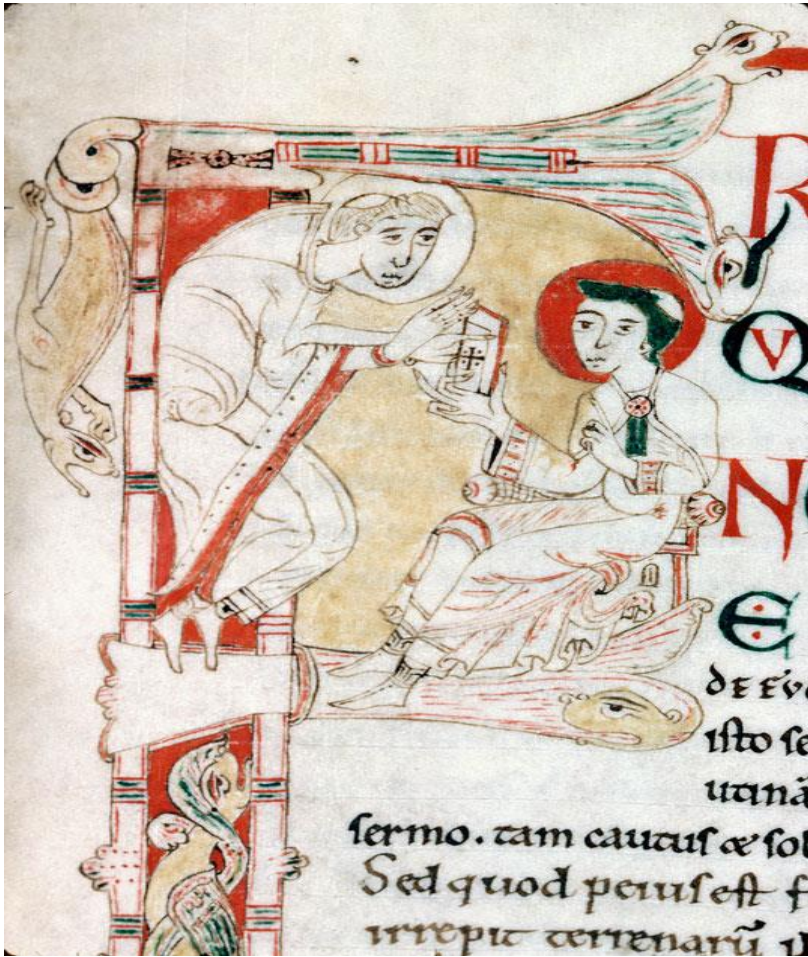 F R
QV
N
E
DE EV
isto se
utinā
sermo. tam cautus & sol
Sed quod peius est f
irrepit terrenarū